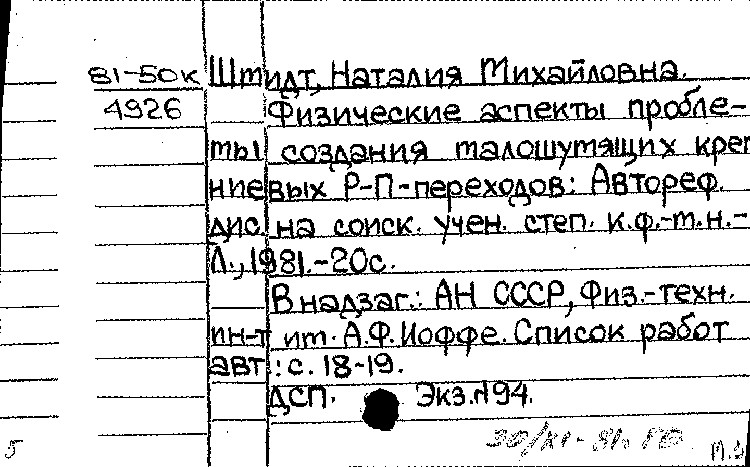 81-50к Шмидт, Наталия Михайловна.
4926 Физические аспекты пробле-
мы создания малошумящих крем
ниевых Р-П-переходов: Автореф.
дис. на соиск. учен. степ. к.ф.-м.н.-
Л., 1981.-20с.
В надзаг.: АН СССР, Физ.-техн.
ин-т им. А.Ф.Иоффе. Список работ
авт.: с. 18-19.
ДСП. Экз.№94.
30/XI-81г.
5